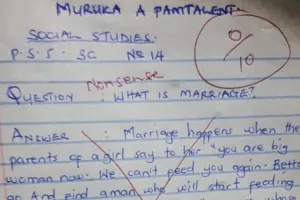 MURUKA A PAMTALENT.
SOCIAL STUDIES.
P.S.S. SC No 14
0/10
Nonsense
QUESTION : WHAT IS MARRIAGE?
ANSWER : Marriage happens when the
parents of a girl say to her "you are big
woman now. We can't feed you again. Bette
go And find a man who will start feeding